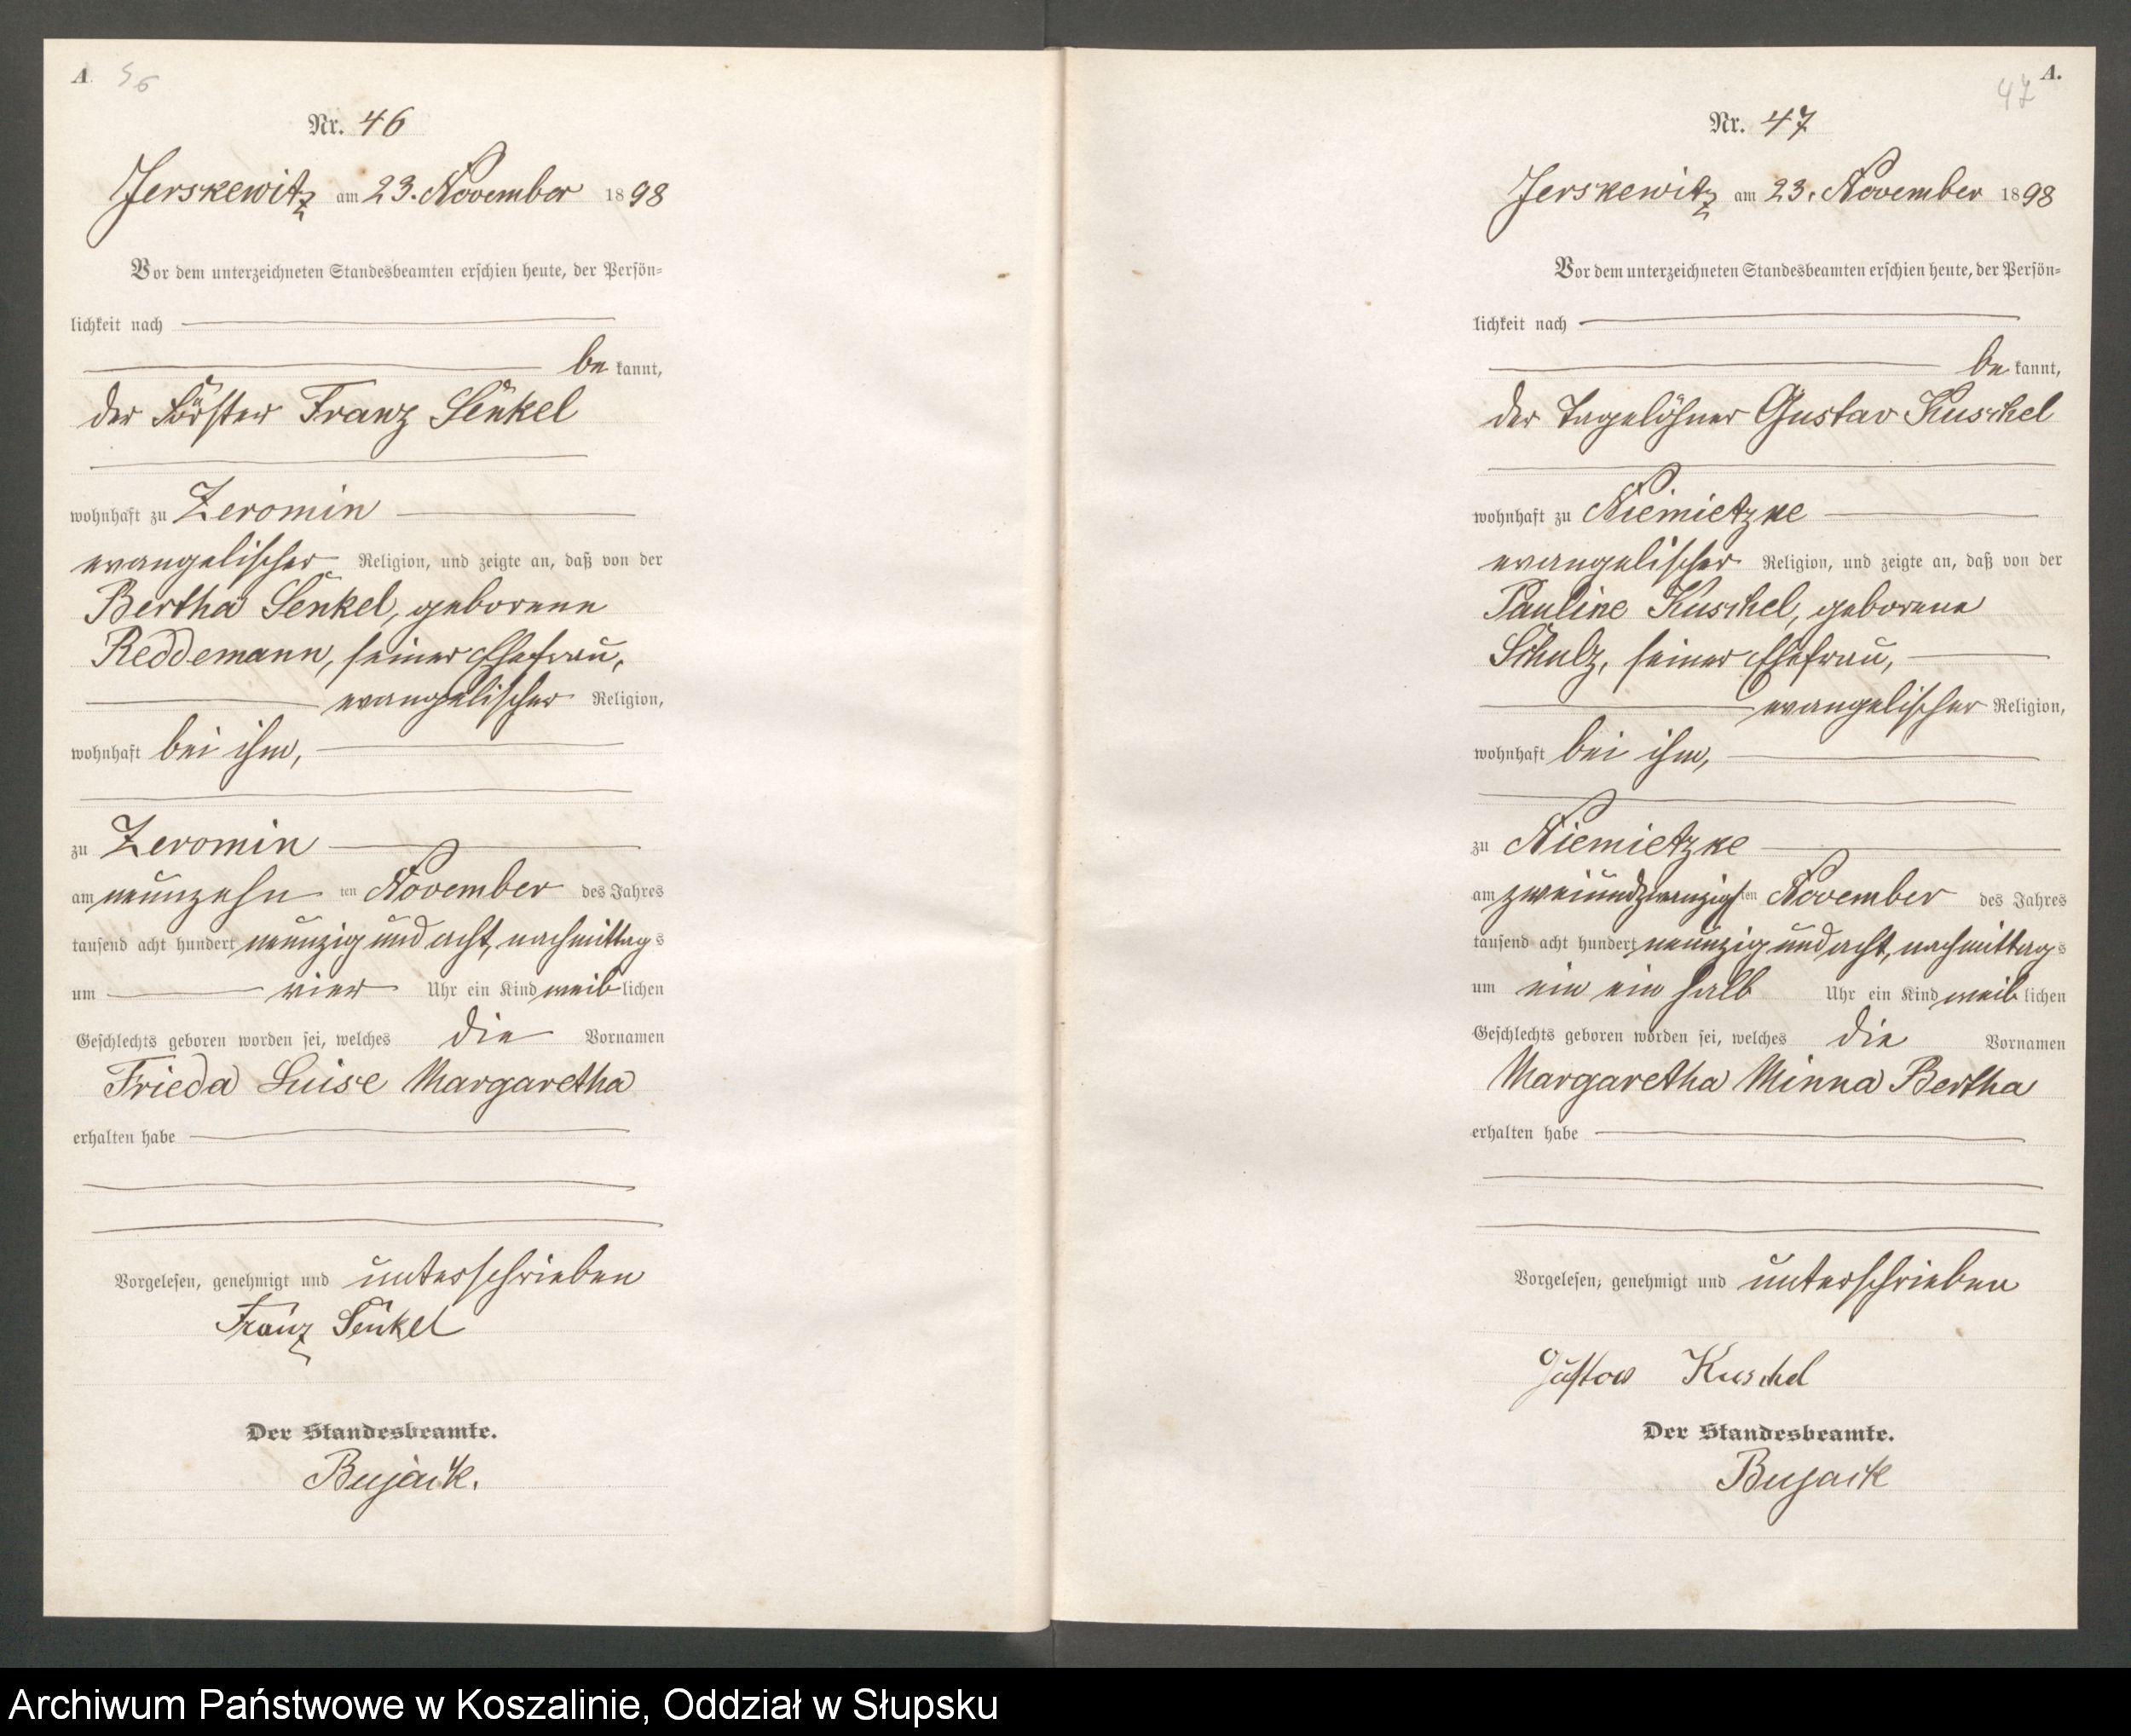 A
56
Nr. 46
Jerskewitz am 23. November 1898
Vor dem unterzeichneten Standesbeamten erschien heute, der Persön=
lichkeit nach
be kannt,
der Förster Franz Senkel
wohnhaft zu Zeromin
evangelischer Religion, und zeigte an, daß von der
Bertha Senkel, geborene
Reddemann, seiner Ehefrau,
evangelischer Religion,
wohnhaft bei ihm,
zu Zeromin
am neunzehn ten November des Jahres
tausend acht hundert neunzig und acht, nachmittags
um vier Uhr ein Kind weiblichen
Geschlechts geboren worden sei, welches die Vornamen
Frieda Luise Margaretha
erhalten habe
Vorgelesen, genehmigt und unterschrieben
Franz Senkel
Der Standesbeamte.
Bujack.
A.
47
Nr. 47
Jerskewitz am 23. November 1898
Vor dem unterzeichneten Standesbeamten erschien heute, der Persön=
lichkeit nach
be kannt,
der Tagelöhner Gustav Kuschel
wohnhaft zu Niemietzke
evangelischer Religion, und zeigte an, daß von der
Pauline Kuschel, geborene
Schulz, seiner Ehefrau,
evangelischer Religion,
wohnhaft bei ihm,
zu Niemietzke
am zweiundzwanzigsten November des Jahres
tausend acht hundert neunzig und acht, nachmittags
um ein ein halb Uhr ein Kind weiblichen
Geschlechts geboren worden sei, welches die Vornamen
Margaretha Minna Bertha
erhalten habe
Vorgelesen, genehmigt und unterschrieben
Gustow Kuschel
Der Standesbeamte.
Bujack
Archiwum Państwowe w Koszalinie, Oddział w Słupsku